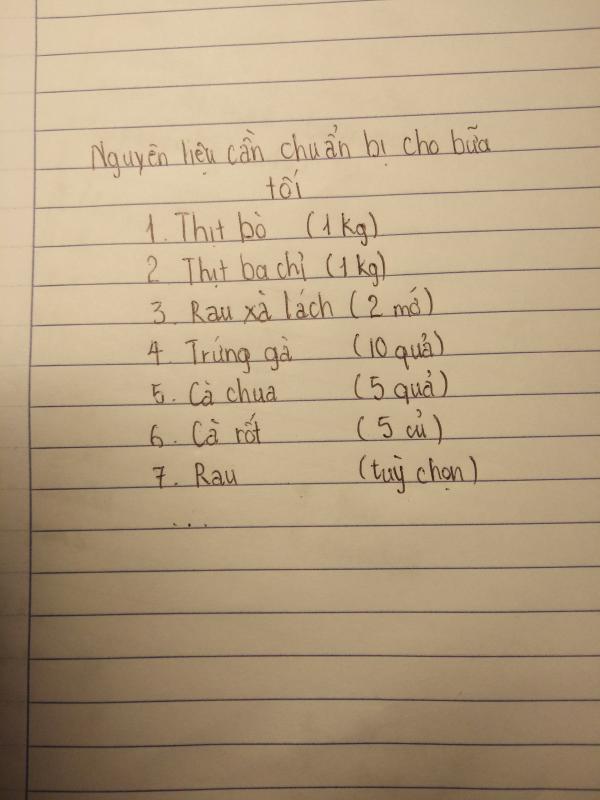 Nguyên liệu cần chuẩn bị cho bữa
tối
1. Thịt bò (1 kg)
2. Thịt ba chỉ (1 kg)
3. Rau xà lách (2 mớ)
4. Trứng gà (10 quả)
5. Cà chua (5 quả)
6. Cà rốt (5 củ)
7. Rau (tuỳ chọn)
...